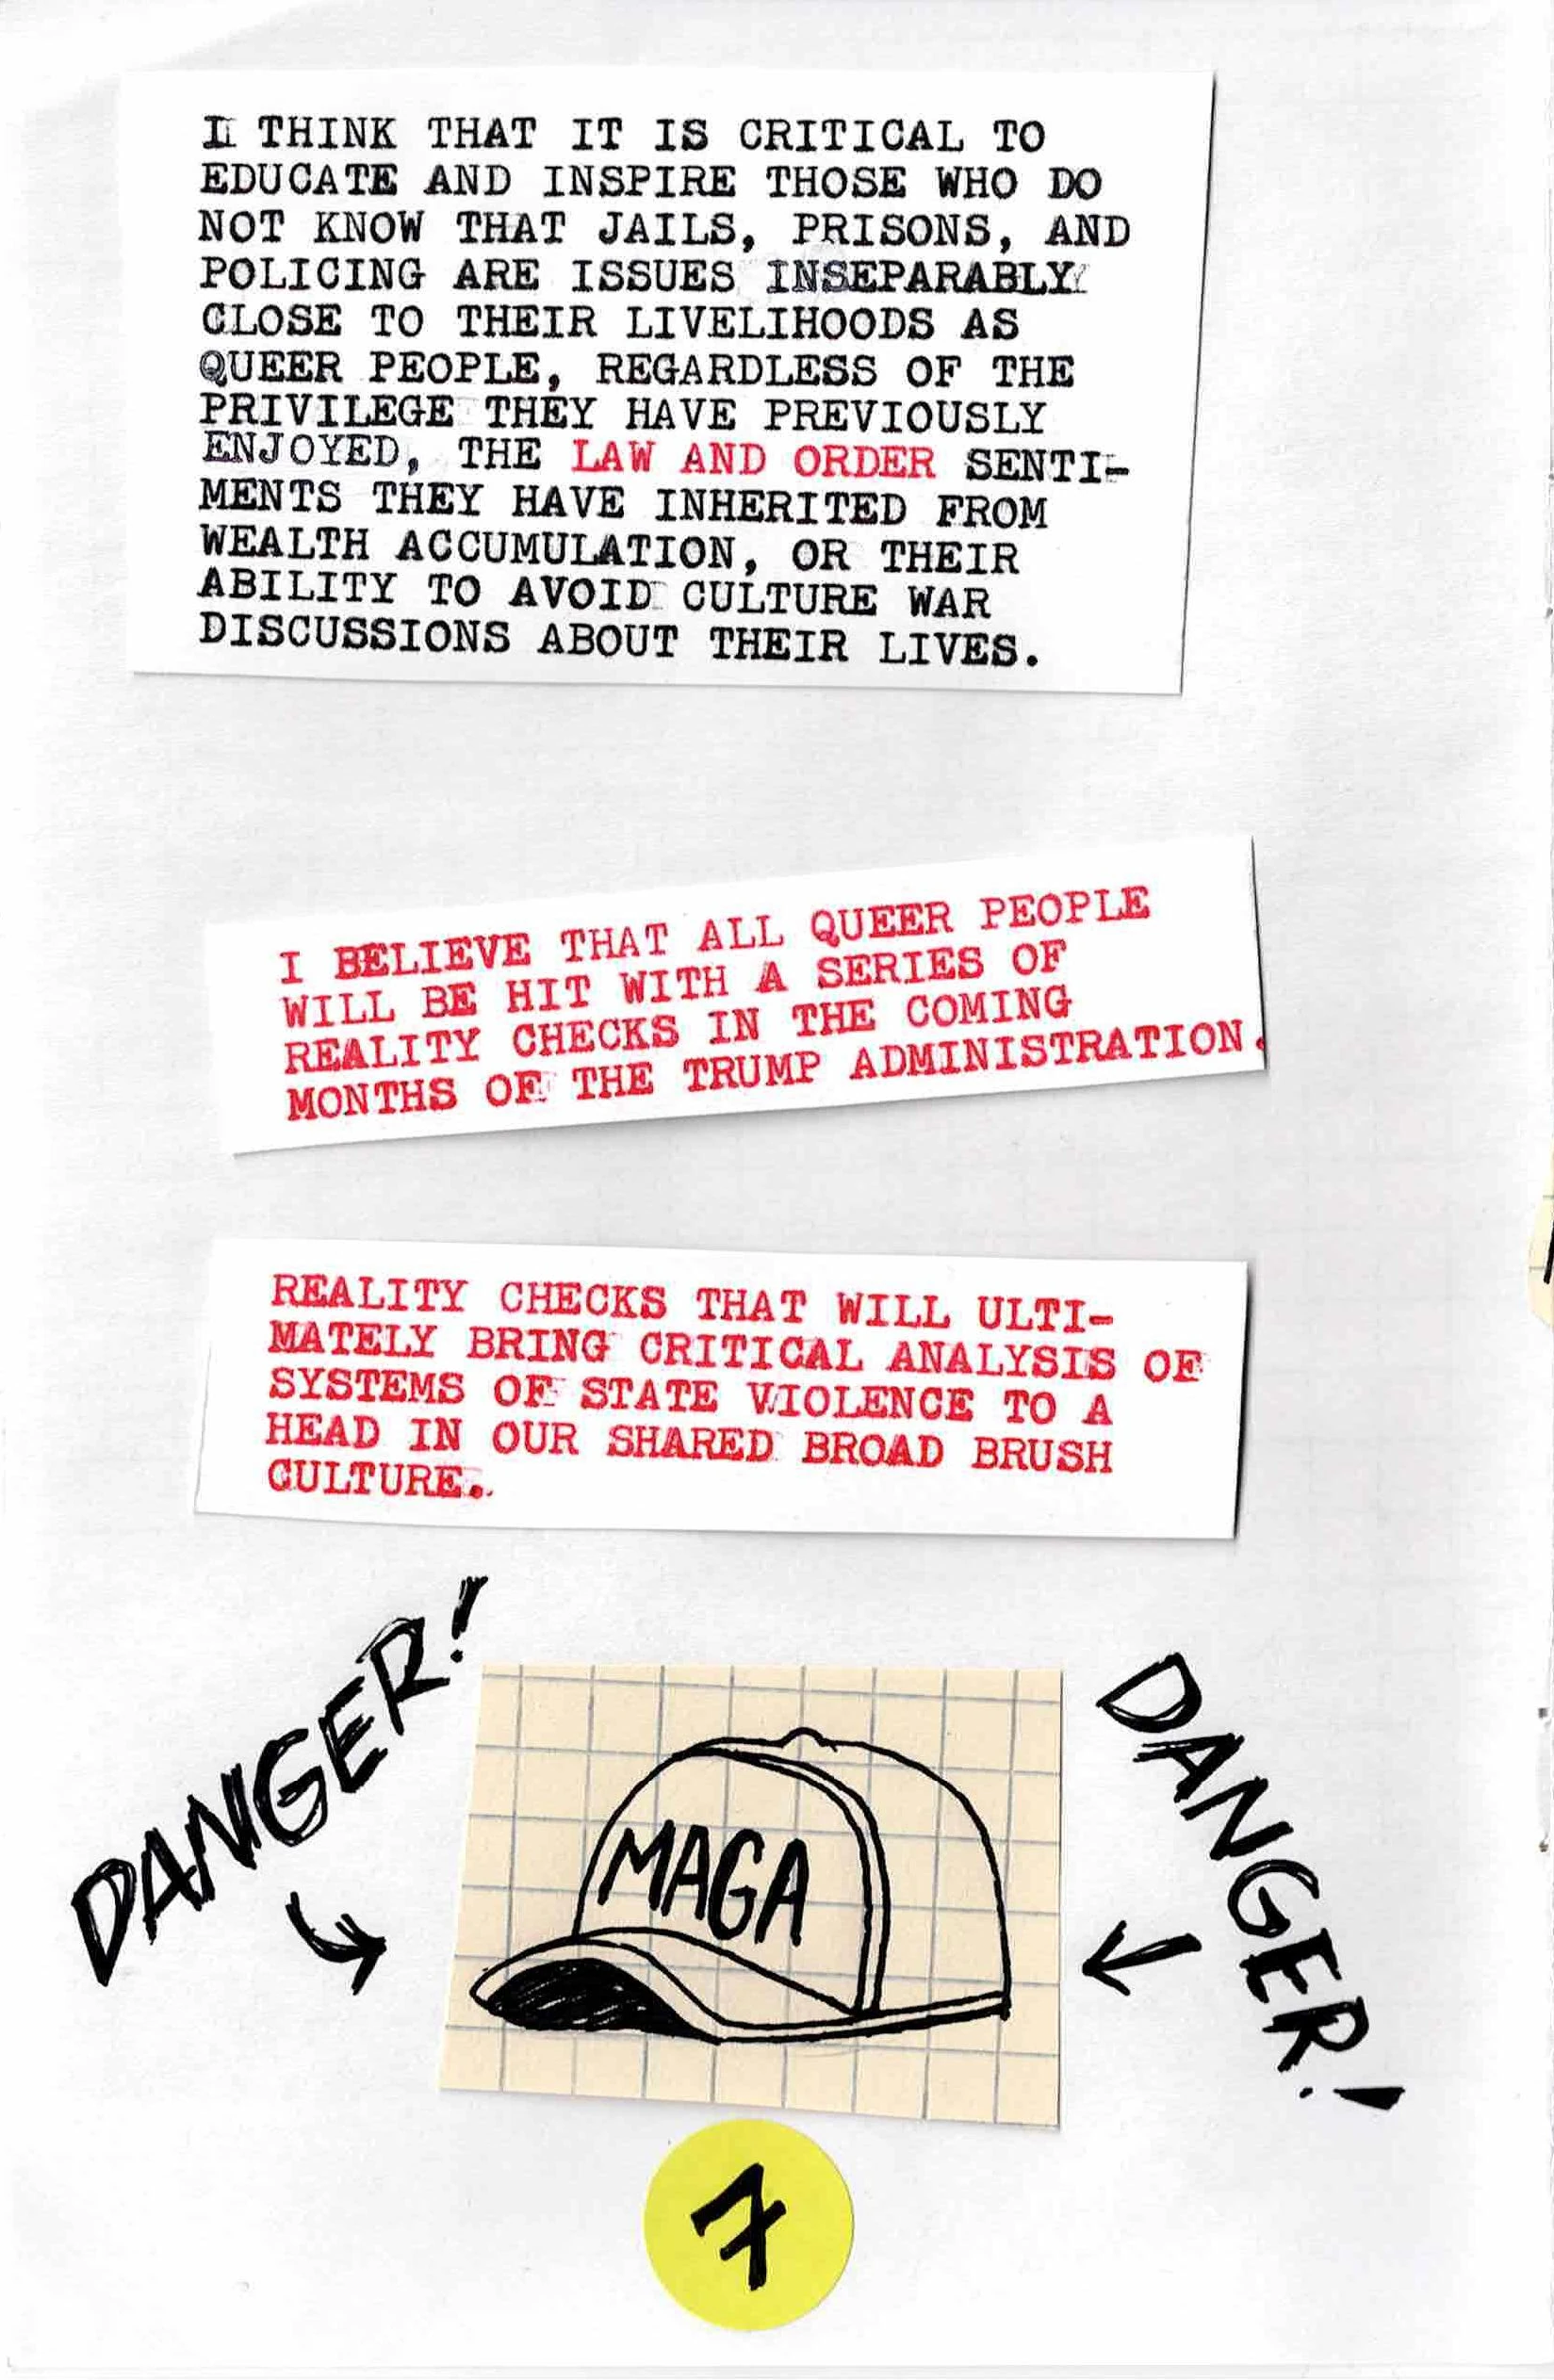 I THINK THAT IT IS CRITICAL TO
EDUCATE AND INSPIRE THOSE WHO DO
NOT KNOW THAT JAILS, PRISONS, AND
POLICING ARE ISSUES INSEPARABLY
CLOSE TO THEIR LIVELIHOODS AS
QUEER PEOPLE, REGARDLESS OF THE
PRIVILEGE THEY HAVE PREVIOUSLY
ENJOYED, THE LAW AND ORDER SENTI-
MENTS THEY HAVE INHERITED FROM
WEALTH ACCUMULATION, OR THEIR
ABILITY TO AVOID CULTURE WAR
DISCUSSIONS ABOUT THEIR LIVES.
I BELIEVE THAT ALL QUEER PEOPLE
WILL BE HIT WITH A SERIES OF
REALITY CHECKS IN THE COMING
MONTHS OF THE TRUMP ADMINISTRATION.
REALITY CHECKS THAT WILL ULTI-
MATELY BRING CRITICAL ANALYSIS OF
SYSTEMS OF STATE VIOLENCE TO A
HEAD IN OUR SHARED BROAD BRUSH
CULTURE.
DANGER!
DANGER!
MAGA
7